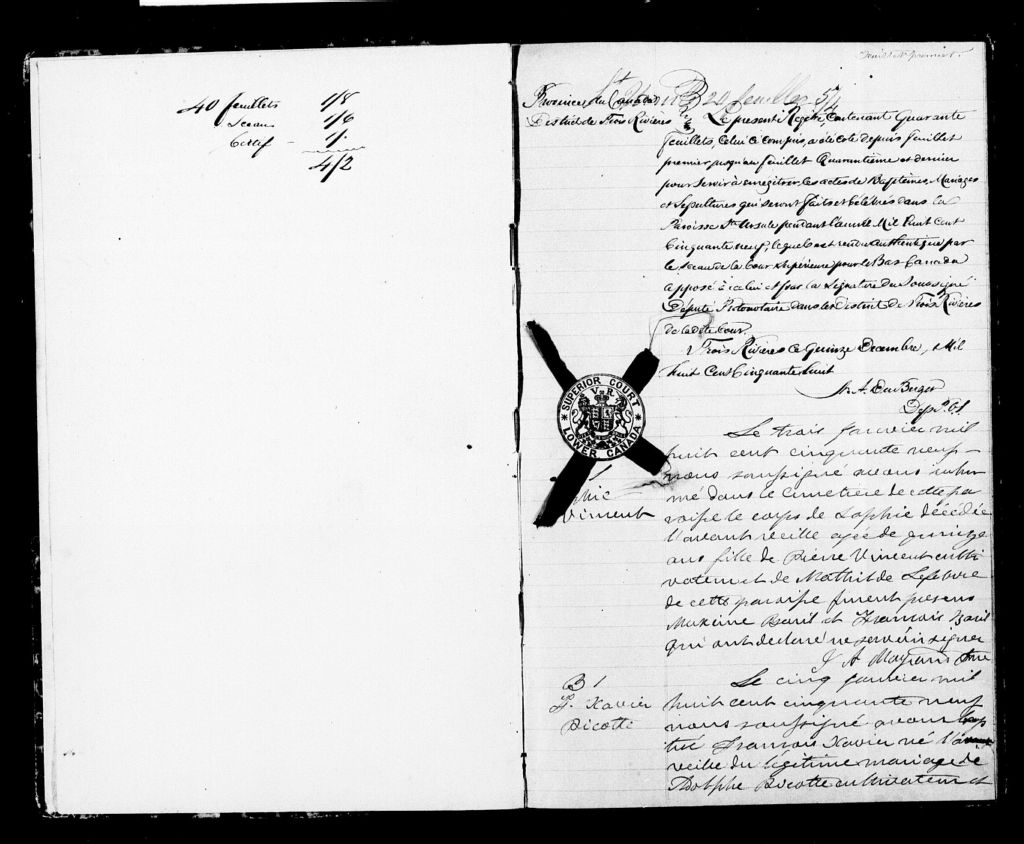 40 feuillets 1/8
Sceau 1/6
Certif - 1/.
4/2
Feuillet premier.
Province du Canada
District de Trois Rivières
20 feuilles
Le présent Registre, Contenant Quarante
feuillets, Celui Ci compris, a été Coté depuis feuillet
premier jusqu'au feuillet Quarantième et dernier
pour servir à enregistrer les actes de Baptêmes, Mariages
et Sépultures qui seront faits et Célébrés dans la
Paroisse Ste Ursule pendant l'année Mil huit Cent
Cinquante neuf, lequel est rendu authentique par
le Sceau de la Cour Supérieure pour le Bas-Canada
apposé à icelui et par la Signature du Soussigné
Député Protonotaire dans le District de Trois Rivières
de la dite Cour.
Trois Rivières ce Quinze Decembre, Mil
huit Cent Cinquante huit
Dep.
SUPERIOR COURT
V R
LOWER CANADA
Le trois Janvier mil
huit cent cinquante neuf
nous soussigné avons inhu
mé dans le cimetière de cette pa
roisse le corps de Sophie décédée
Vincent
l'avant veille agée de quinze
ans fille de Pierre Vincent culti
vateur et de Mathilde Lefebvre
de cette paroisse furent présens
Maxime Baril et Francois Baril
qui ont declaré ne savoir signer
J A Mayrand Ptre
B 1
F. Xavier
Picotte
Le cinq Janvier mil
huit cent cinquante neuf
nous soussigné avons bap
tisé Francois Xavier né l'avant
veille du légitime mariage de
Adolphe Picotte cultivateur et